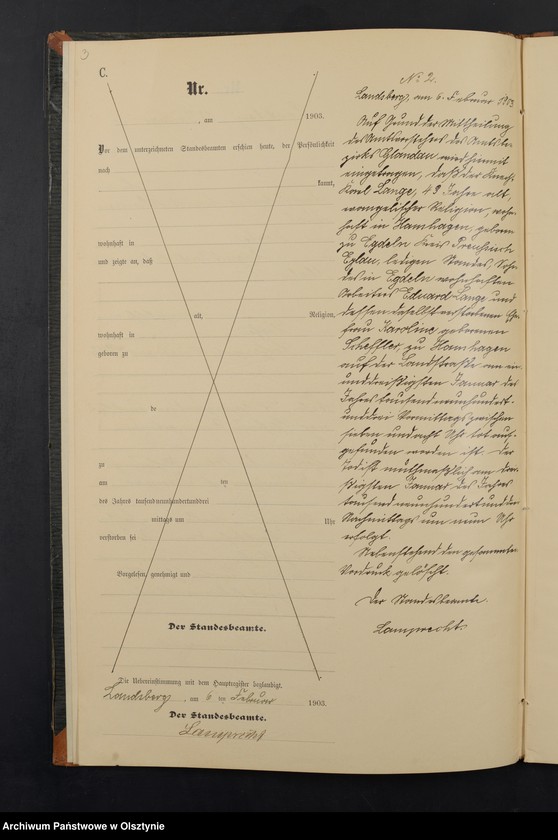 3
C.
Nr.
, am 1903.
Vor dem unterzeichneten Standesbeamten erschien heute, der Persönlichkeit
nach
kannt,
wohnhaft in
und zeigte an, daß
alt, Religion,
wohnhaft in
geboren zu
de
zu
am ten
des Jahrs tausendneunhundertunddrei
mittags um Uhr
verstorben sei
Vorgelesen, genehmigt und
Der Standesbeamte.
Die Uebereinstimmung mit dem Hauptregister beglaubigt.
Landsberg, am 6 ten Februar 1903.
Der Standesbeamte.
Lamprecht
No 2.
Landsberg, am 6. Februar 1903.
Auf Grund der Mittheilung
des Amtsvorstehers des Amtsbe-
zirks Glandau wird hiermit
eingetragen, daß der Knecht
Karl Lange, 43 Jahre alt,
evangelischer Religion, wohn-
haft in Hamhagen, geboren
zu Egdeln Kreis Preußisch
Eylau, ledigen Standes, Sohn
des in Egdeln wohnhaften
Arbeiters Eduard Lange und
dessen daselbst verstorbenen Ehe-
frau Karoline, geborenen
Scheffler, zu Hamhagen
auf der Landstraße am ein-
unddreißigsten Januar des
Jahres tausendneunhundert-
unddrei Vormittags zwischen
sieben und acht Uhr tot auf-
gefunden worden ist. Der
Tod ist muthmaßlich am drei-
ßigsten Januar des Jahres
tausendneunhundertunddrei
Nachmittags um neun Uhr
erfolgt.
Nebenstehend den gesammten
Vordruck gelöscht.
Der Standesbeamte.
Lamprecht
Archiwum Państwowe w Olsztynie